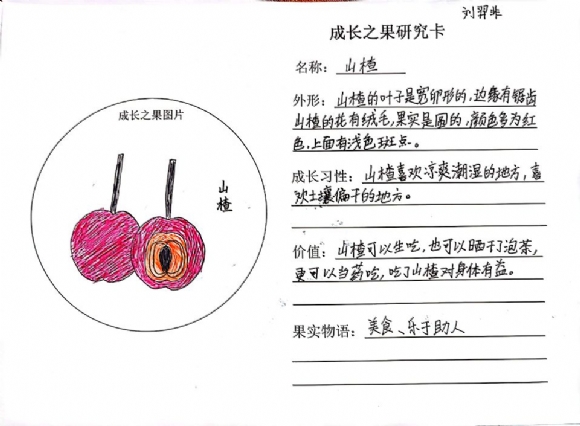 刘羿非
成长之果研究卡
名称：山楂
外形：山楂的叶子是宽卵形的，边缘有锯齿
山楂的花有绒毛，果实是圆的，颜色多为红
色，上面有浅色斑点。
成长习性：山楂喜欢凉爽潮湿的地方，喜
欢土壤偏干的地方。
价值：山楂可以生吃，也可以晒干了泡茶，
更可以当药吃，吃了山楂对身体有益。
果实物语：美食、乐于助人
成长之果图片
山楂